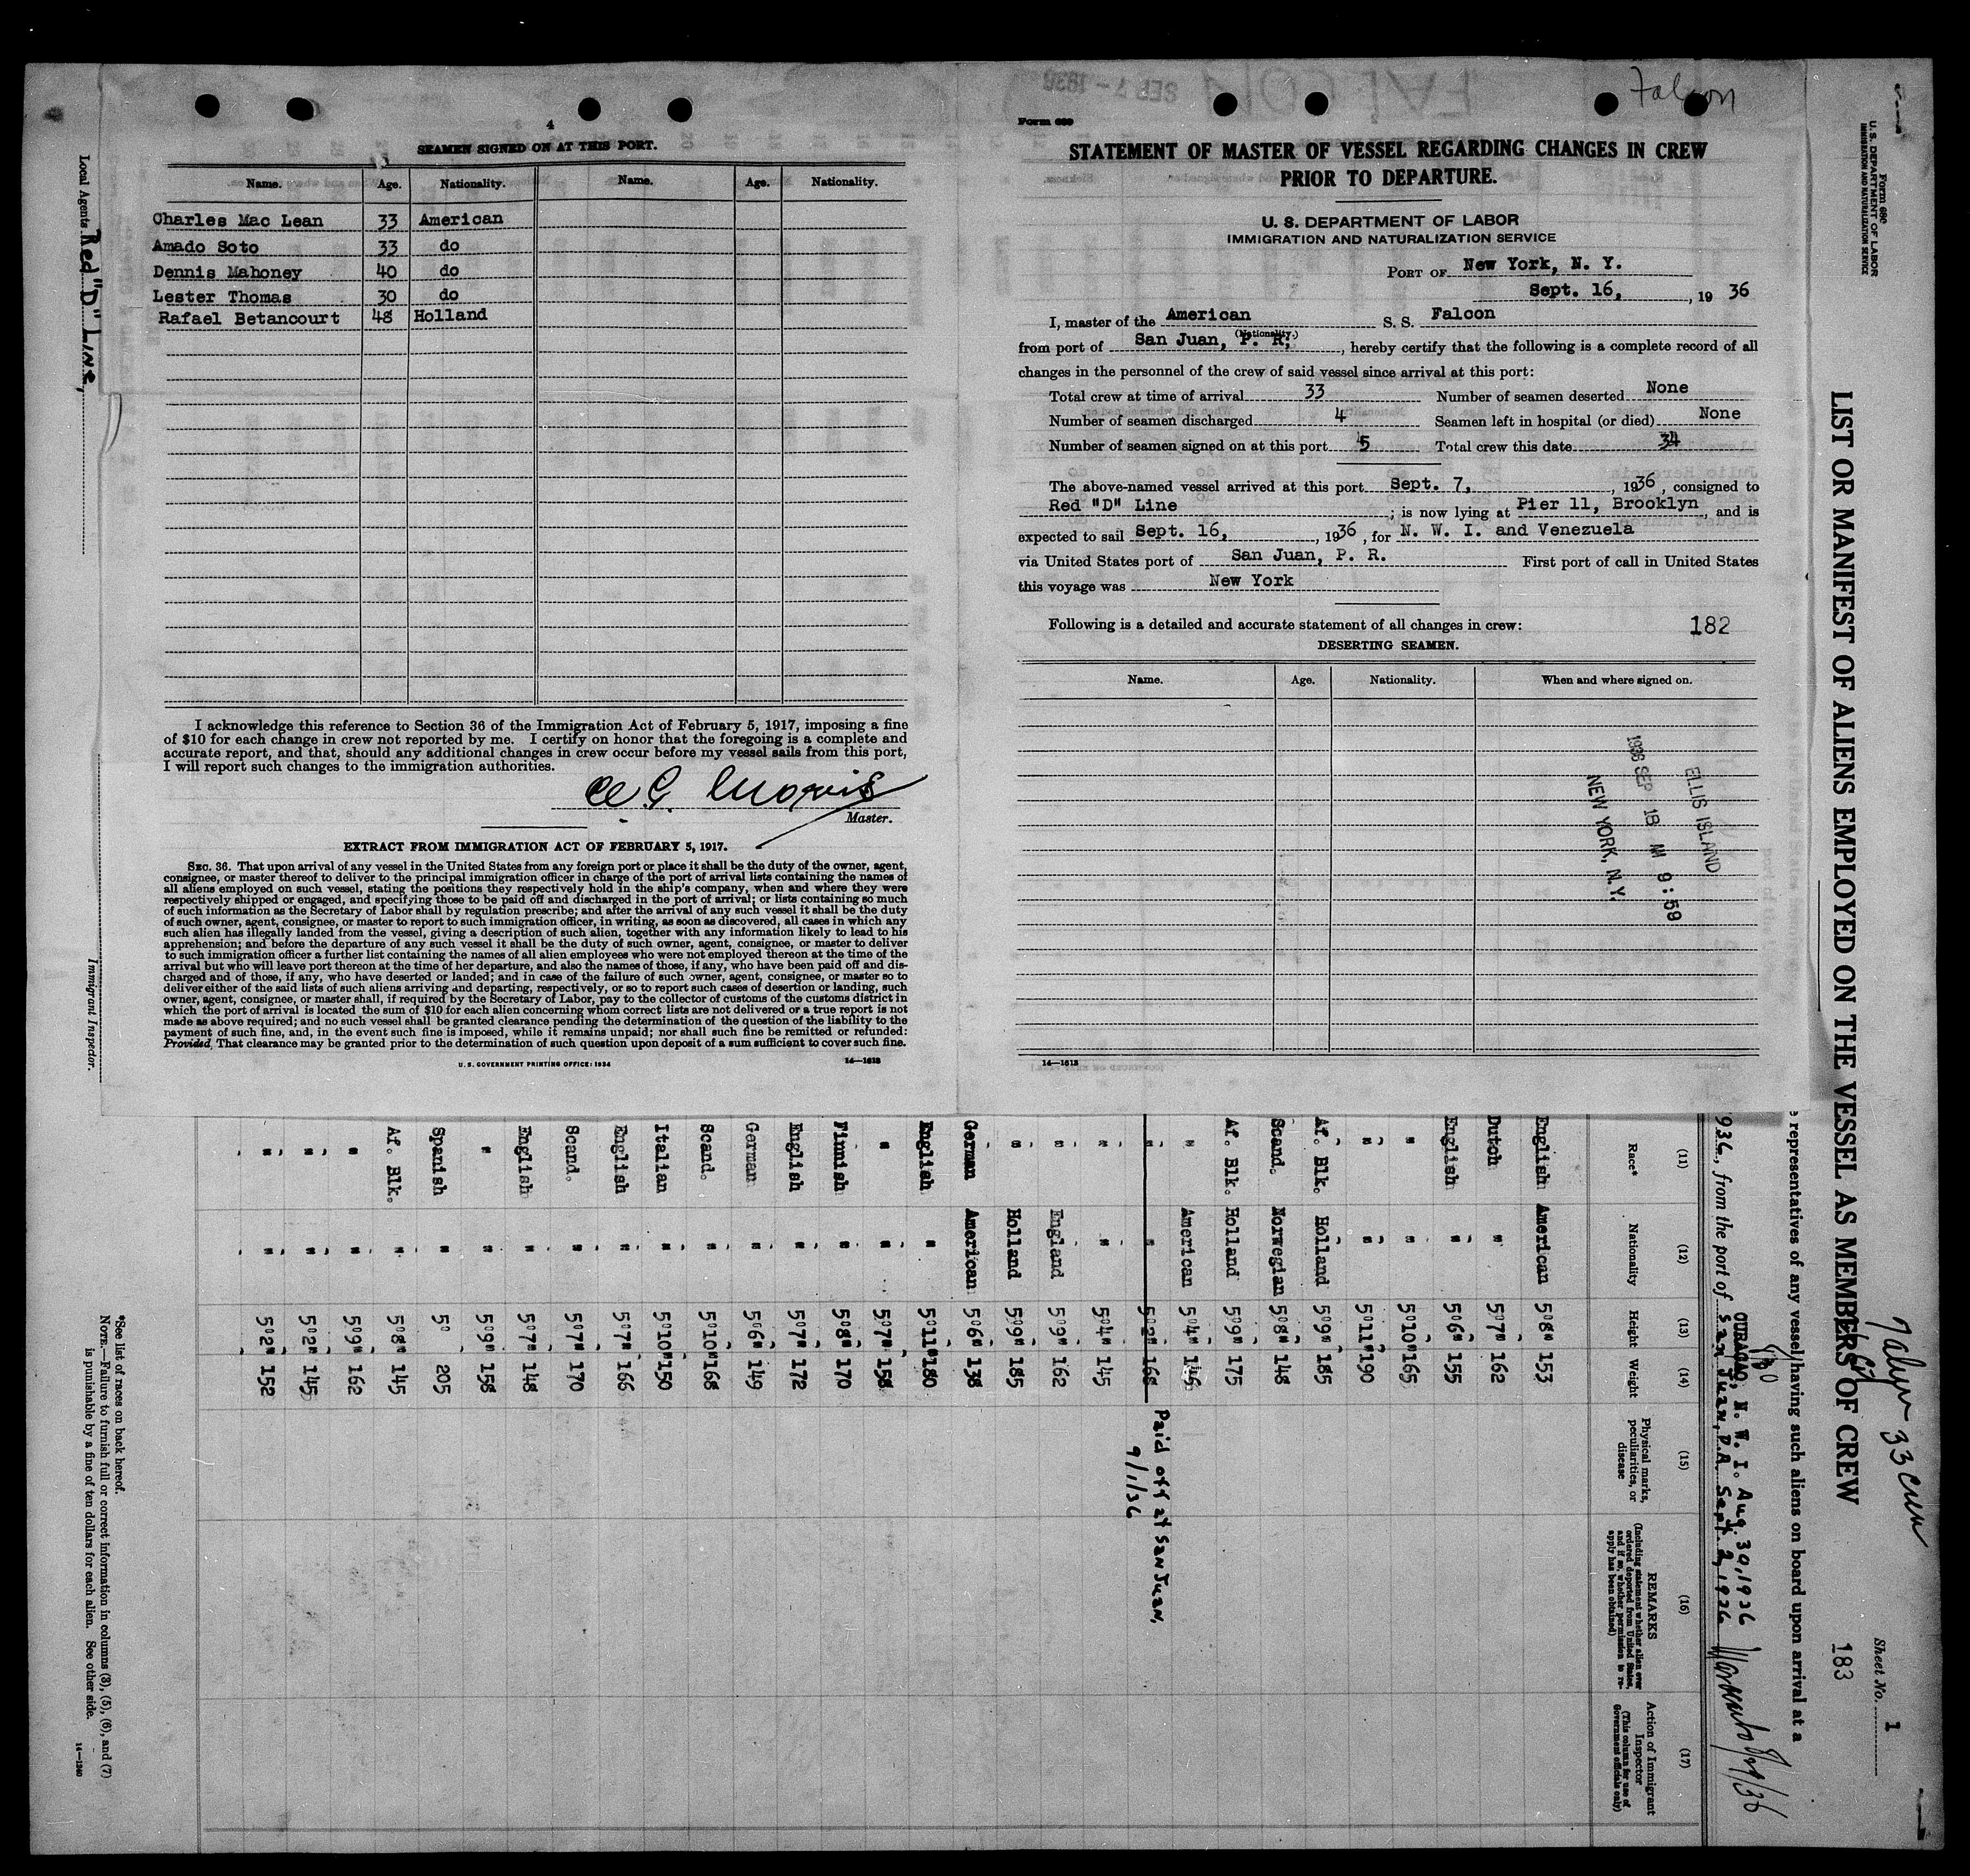 4
SEAMEN SIGNED ON AT THIS PORT.
Name. Age. Nationality. Name. Age. Nationality.
Charles Mac Lean 33 American
Amado Soto 33 do
Dennis Mahoney 40 do
Lester Thomas 30 do
Rafael Betancourt 48 Holland
I acknowledge this reference to Section 36 of the Immigration Act of February 5, 1917, imposing a fine
of $10 for each change in crew not reported by me. I certify on honor that the foregoing is a complete and
accurate report, and that, should any additional changes in crew occur before my vessel sails from this port,
I will report such changes to the immigration authorities.
Master.
EXTRACT FROM IMMIGRATION ACT OF FEBRUARY 5, 1917.
SEC. 36. That upon arrival of any vessel in the United States from any foreign port or place it shall be the duty of the owner, agent,
consignee, or master thereof to deliver to the principal immigration officer in charge of the port of arrival lists containing the names of
all aliens employed on such vessel, stating the positions they respectively hold in the ship's company, when and where they were
respectively shipped or engaged, and specifying those to be paid off and discharged in the port of arrival; or lists containing so much
of such information as the Secretary of Labor shall by regulation prescribe; and after the arrival of any such vessel it shall be the duty
of such owner, agent, consignee, or master to report to such immigration officer, in writing, as soon as discovered, all cases in which any
such alien has illegally landed from the vessel, giving a description of such alien, together with any information likely to lead to his
apprehension; and before the departure of any such vessel it shall be the duty of such owner, agent, consignee, or master to deliver
to such immigration officer a further list containing the names of all alien employees who were not employed thereon at the time of the
arrival but who will leave port thereon at the time of her departure, and also the names of those, if any, who have been paid off and dis-
charged and of those, if any, who have deserted or landed; and in case of the failure of such owner, agent, consignee, or master so to
deliver either of the said lists of such aliens arriving and departing, respectively, or so to report such cases of desertion or landing, such
owner, agent, consignee, or master shall, if required by the Secretary of Labor, pay to the collector of customs of the customs district in
which the port of arrival is located the sum of $10 for each alien concerning whom correct lists are not delivered or a true report is not
made as above required; and no such vessel shall be granted clearance pending the determination of the question of the liability to the
payment of such fine, and, in the event such fine is imposed, while it remains unpaid; nor shall such fine be remitted or refunded:
Provided, That clearance may be granted prior to the determination of such question upon deposit of a sum sufficient to cover such fine.
U. S. GOVERNMENT PRINTING OFFICE: 1934 14—1613
Falcon
Form 689
STATEMENT OF MASTER OF VESSEL REGARDING CHANGES IN CREW
PRIOR TO DEPARTURE.
U. S. DEPARTMENT OF LABOR
IMMIGRATION AND NATURALIZATION SERVICE
PORT OF New York, N. Y.
Sept. 16, , 19 36
I, master of the American S. S. Falcon
(Nationality.)
from port of San Juan, P. R, , hereby certify that the following is a complete record of all
changes in the personnel of the crew of said vessel since arrival at this port:
Total crew at time of arrival 33 Number of seamen deserted None
Number of seamen discharged 4 Seamen left in hospital (or died) None
Number of seamen signed on at this port 5 Total crew this date 34
The above-named vessel arrived at this port Sept. 7, , 1936 , consigned to
Red "D" Line ; is now lying at Pier 11, Brooklyn , and is
expected to sail Sept. 16, , 1936 , for N. W. I. and Venezuela
via United States port of San Juan, P. R. First port of call in United States
this voyage was New York
Following is a detailed and accurate statement of all changes in crew: 182
DESERTING SEAMEN.
Name. Age. Nationality. When and where signed on.
ELLIS ISLAND
1936 SEP 18 AM 9:59
NEW YORK, N.Y.
14—1613
Form 680
U. S. DEPARTMENT OF LABOR
IMMIGRATION AND NATURALIZATION SERVICE
Sheet No. 1
33 crew
LIST OR MANIFEST OF ALIENS EMPLOYED ON THE VESSEL AS MEMBERS OF CREW
183
e representatives of any vessel having such aliens on board upon arrival at a
CURACAO, N. W. I. Aug. 30, 1936
1936, from the port of San Juan, P.R. Sept. 2, 1936
(11) (12) (13) (14) (15) (16) (17)
Race* Nationality Height Weight Physical marks, peculiarities, or disease REMARKS (Including statement whether alien ever ordered deported from United States, and if so, whether permission to re-apply has been obtained) Action of Immigrant Inspector (This column for use of Government officials only)
English American 5'8" 153
Dutch " 5'7" 162
English " 5'6" 155
" " 5'10" 165
" " 5'11" 190
Af. Blk. Holland 5'9" 185
Scand. Norwegian 5'8" 148
Af. Blk. Holland 5'9" 175
" American 5'4" 146
" " 5'2" 168 Paid off at San Juan, 9/1/36
" " 5'4" 145
" England 5'9" 162
" Holland 5'9" 185
German American 5'6" 138
English " 5'11" 180
" " 5'7" 158
Finnish " 5'8" 170
English " 5'7" 172
German " 5'6" 149
Scand. " 5'10" 168
Italian " 5'10" 150
English " 5'7" 166
Scand. " 5'7" 170
English " 5'7" 148
" " 5'9" 158
Spanish " 5' 205
Af. Blk. " 5'8" 145
" " 5'9" 162
" " 5'2" 145
" " 5'2" 152
*See list of races on back hereof.
NOTE.—Failure to furnish full or correct information in columns (3), (5), (6), and (7)
is punishable by a fine of ten dollars for each alien. See other side.
14—1240
Local Agents Red "D" Line,
Immigrant Inspector.